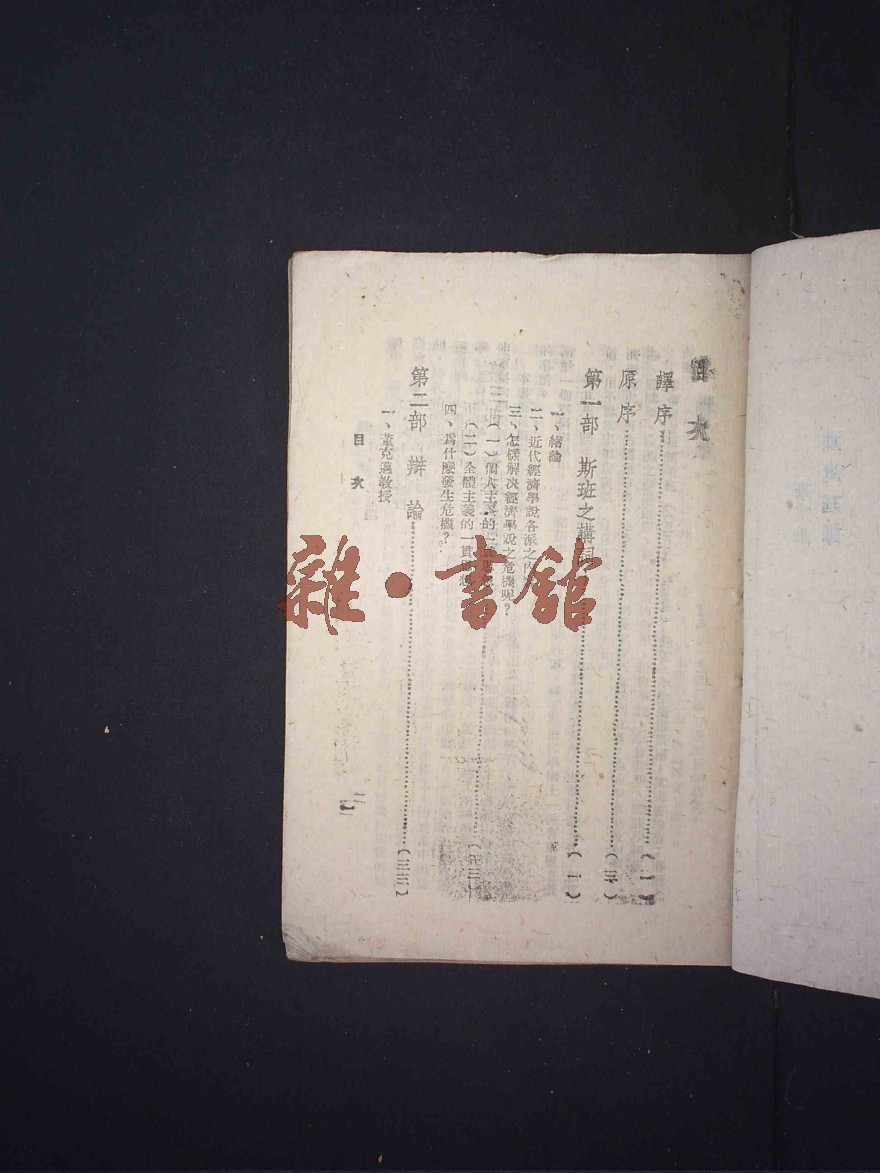 目次
譯序……(一)
原序……
第一部 斯班之講詞……(一)
一、緒論
二、近代經濟學說各派之內
三、怎樣解决經濟學說之危機呢?
(一)個人主義的一貫
(二)全體主義的一貫
四、爲什麽發生危機?
第二部 辯論……(三三)
一、董克邁教授
目 次
一
雜·書館